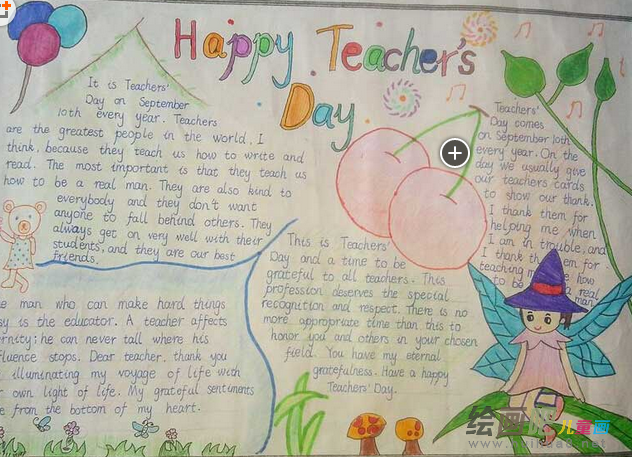 Happy Teacher's
Day
It is Teachers'
Day on September
10th every year. Teachers
are the greatest people in the world. I
think, because they teach us how to write and
read. The most important is that they teach us
how to be a real man. They are also kind to
everybody and they don't want
anyone to fall behind others. They
always get on very well with their
students, and they are our best
friends.
Teachers'
Day comes
on September 10th
every year. On the
day we usually give
our teachers cards
to show our thank.
I thank them for
helping me when
I am in trouble, and
I thank them for
teaching me how
to be a real
man
This is Teachers'
Day and a time to be
grateful to all teachers. This
profession deserves the special
recognition and respect. There is no
more appropriate time than this to
honor you and others in your chosen
field. You have my eternal
gratefulness. Have a happy
Teachers' Day.
man who can make hard things
is the educator. A teacher affects
he can never tall where his
stops. Dear teacher, thank you
illuminating my voyage of life with
own light of life. My grateful sentiments
from the bottom of my heart.
绘画 儿童画